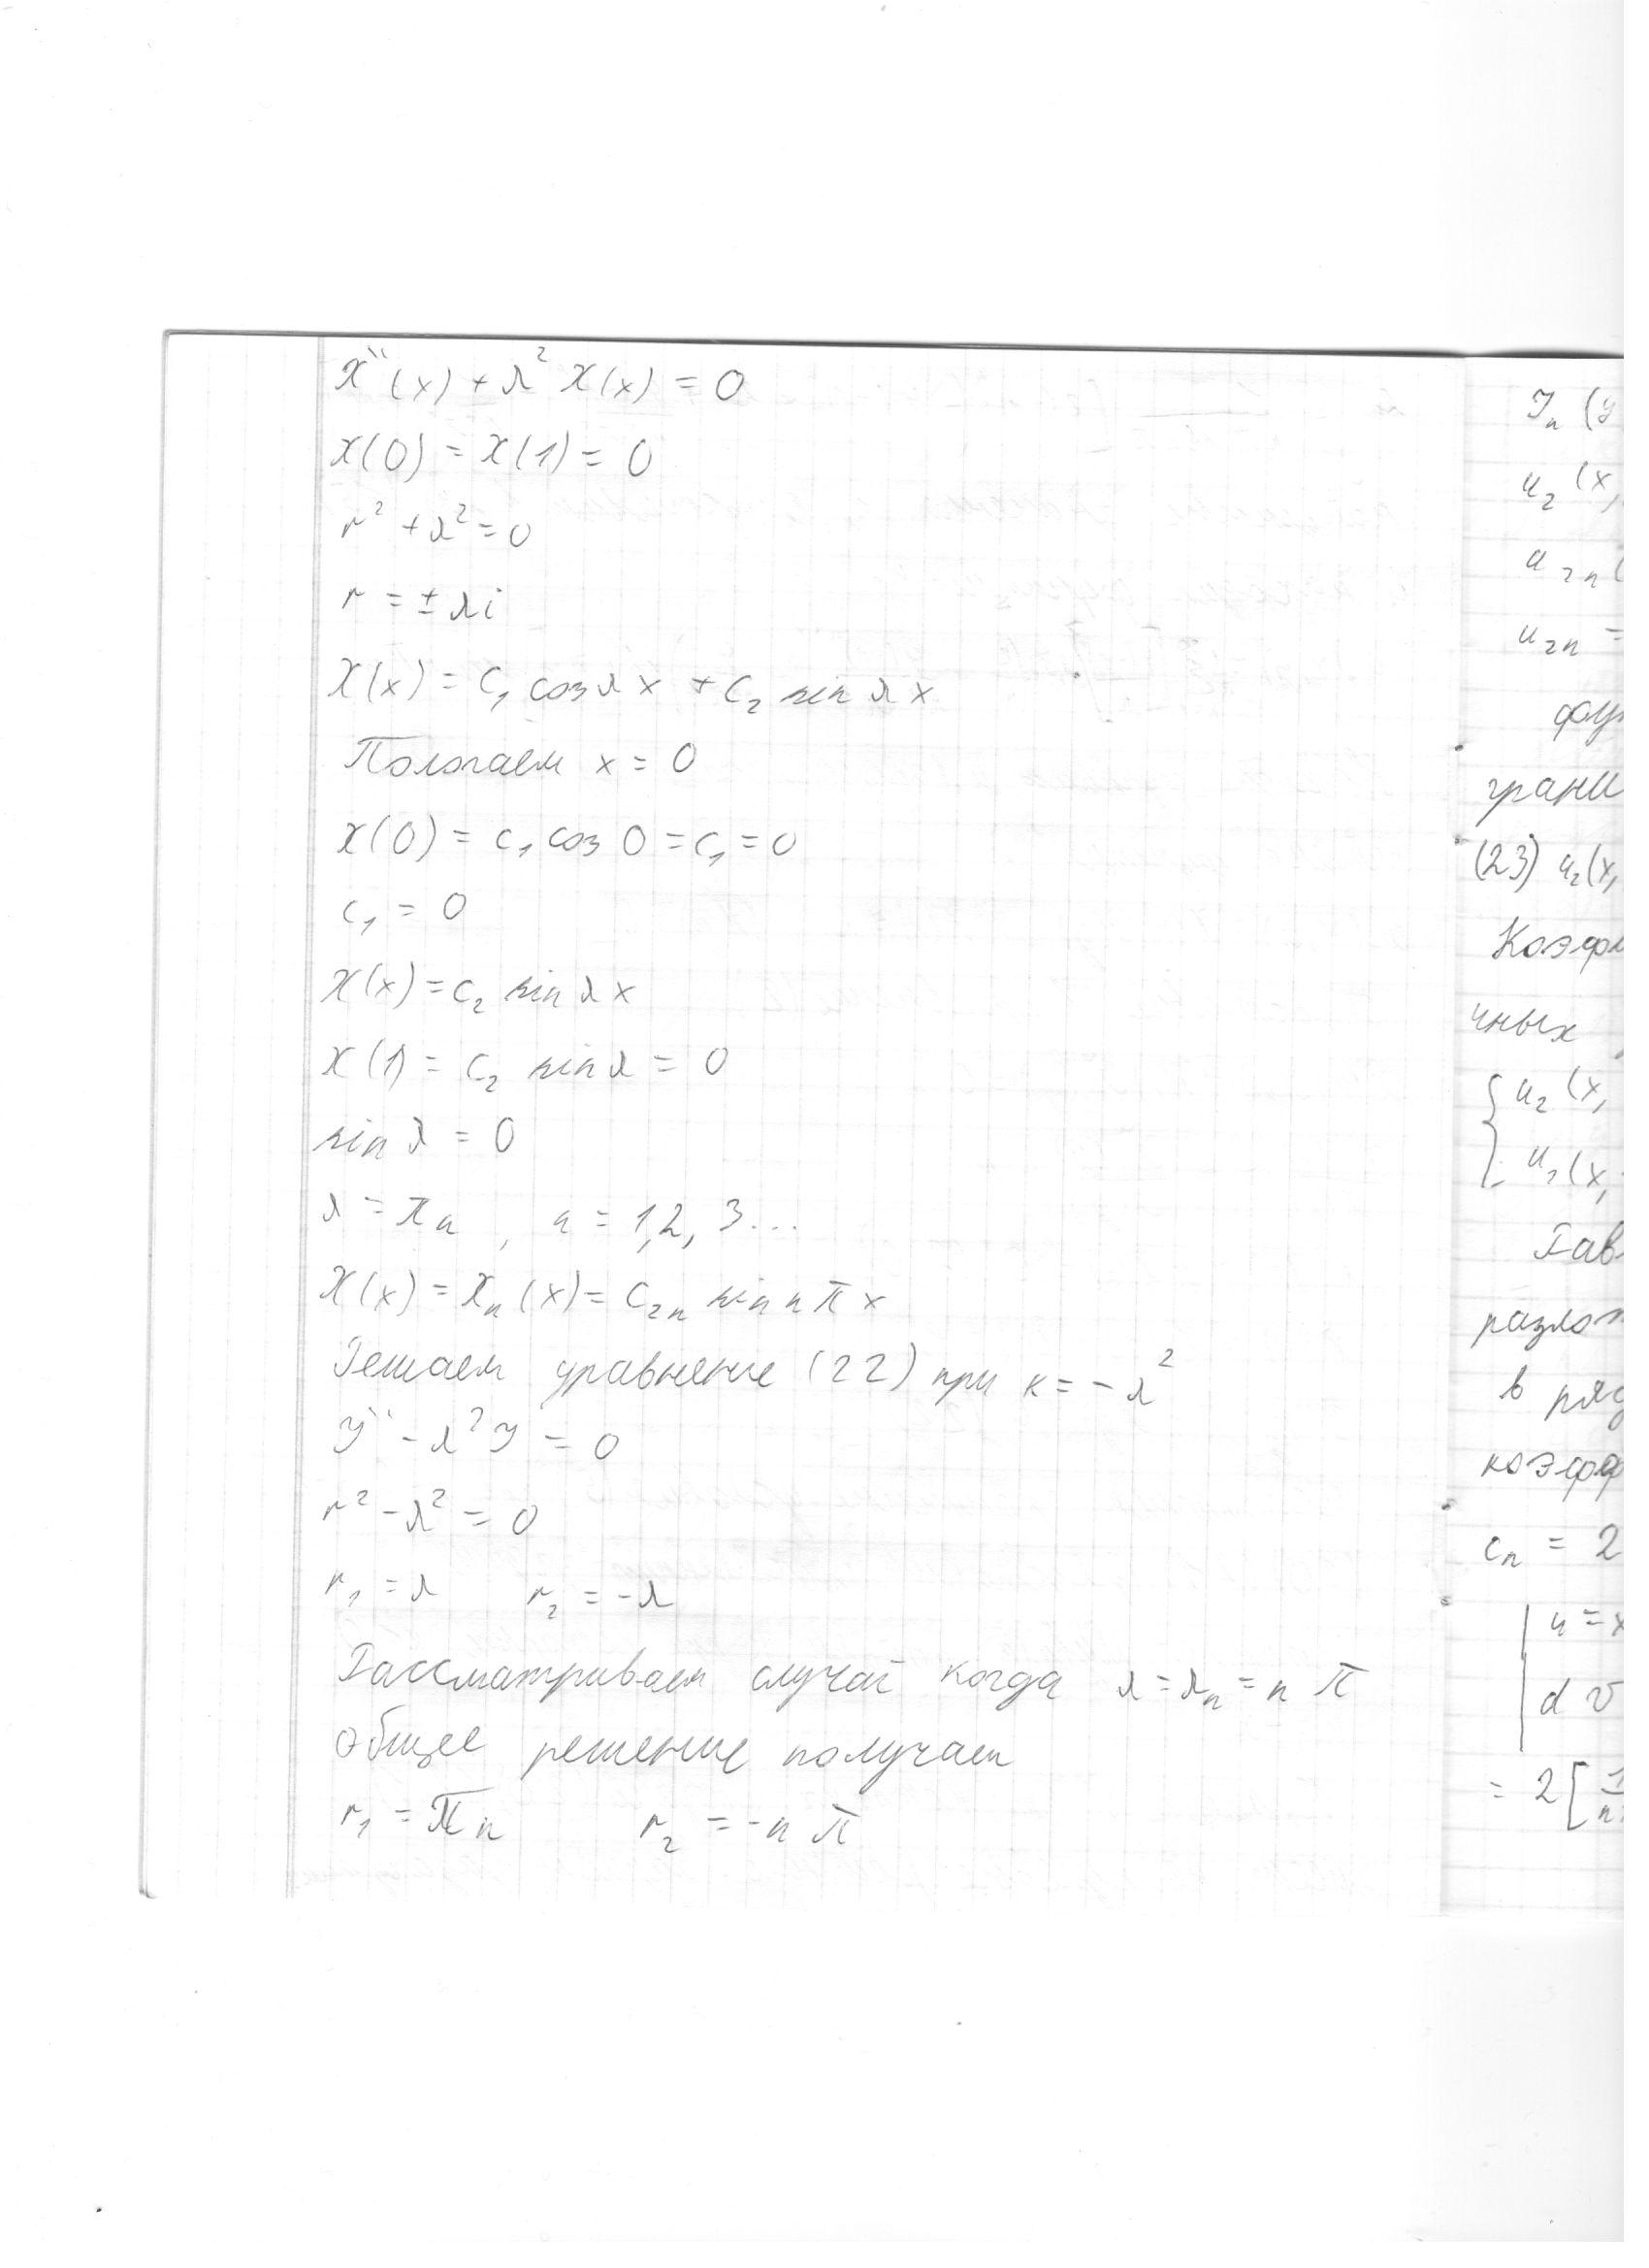 X''(x) + λ² X(x) = 0
X(0) = X(1) = 0
r² + λ² = 0
r = ± λi
X(x) = C₁ cos λx + C₂ sin λx
Пологаем x = 0
X(0) = C₁ cos 0 = C₁ = 0
C₁ = 0
X(x) = C₂ sin λx
X(1) = C₂ sin λ = 0
sin λ = 0
λ = πn , n = 1,2,3...
X(x) = Xₙ(x) = C₂ₙ sin nπx
Решаем уравнение (22) при к = -λ²
Y'' - λ²Y = 0
r² - λ² = 0
r₁ = λ r₂ = -λ
Рассматриваем случай когда λ = λₙ = n π
Общее решение получаем
r₁ = πn r₂ = -n π
Yₙ (y
u₂ (x,
u₂ₙ (
u₂ₙ =
фун
грани
(23) u₂(x,
Коэфф
чных
{ u₂ (x,
u₂(x,
Рав
разлож
в ряд
коэфф
cₙ = 2
u = x
dv
= 2[ 1
n